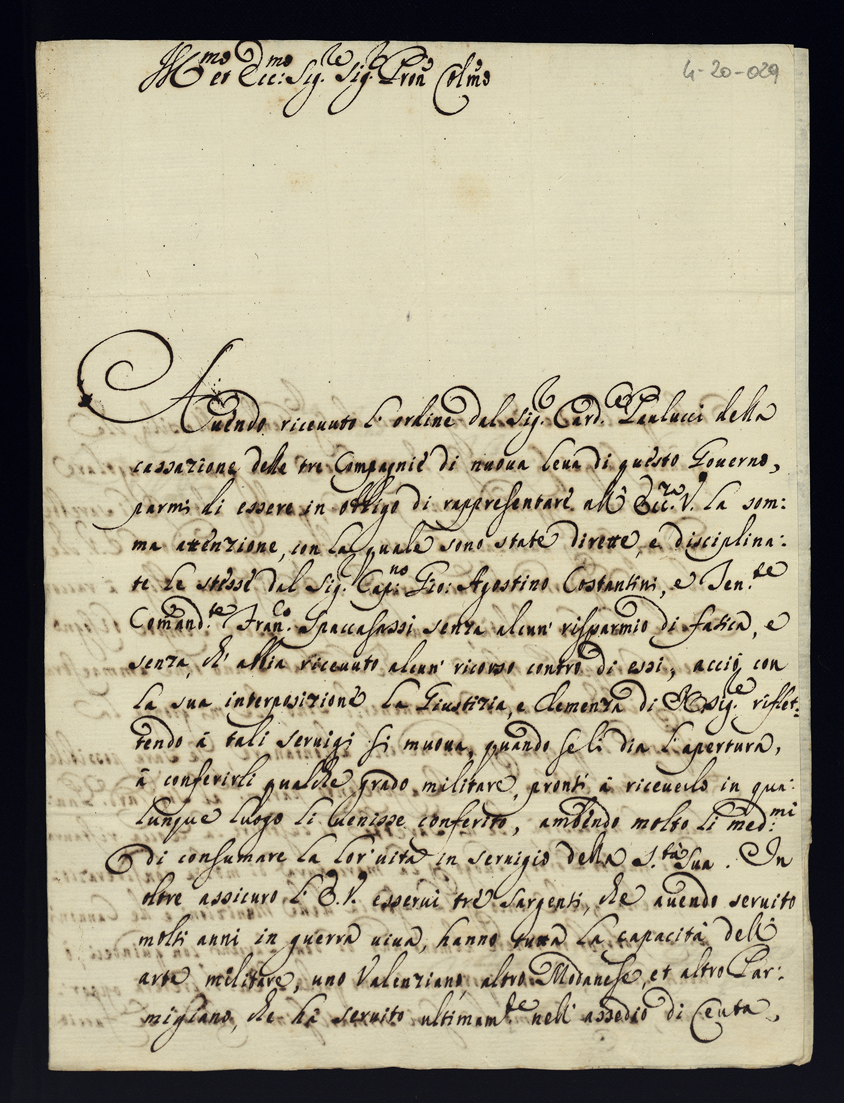 Ill.mo et Ecc.mo Sig.re Sig.r Pron Colmo
4-20-029
Auendo riceuuto l'ordine dal Sig.r Card.le Paulucci della
cassazione delle tre Compagnie di nuoua leua di questo Gouerno,
parmi di essere in obligo di rappresentare all' Ecc.za V.a la som:
ma attenzione, con la quale sono state dirette, e disciplina:
te le stesse dal Sig.r Cap.no Gio: Agostino Costantini, e Ten.te
Comand.te Fran.co Spaccasassi senza alcun' risparmio di fatica, e
senza, ch' abbia riceuuto alcun' ricorso contro di essi, acciò con
la sua interposizione la Giustizia, e Clemenza di N. Sig.re riflet:
tendo à tali seruigi si muoua, quando se li dia l'apertura,
à conferirli qualche grado militare, pronti à riceuerlo in qua:
lunque luogo li uenisse conferito, ambendo molto li med.mi
di consumare la lor' uita in seruigio della S.tà Sua. In
oltre assicuro l' E.V. esserui tre Sargenti, che auendo seruito
molti anni in guerra uiua, hanno tutta la capacità dell'
arte militare, uno Valenziano, altro Modanese, et altro Par:
migiano, che hà seruito ultimam.te nell' assedio di Ceuta,